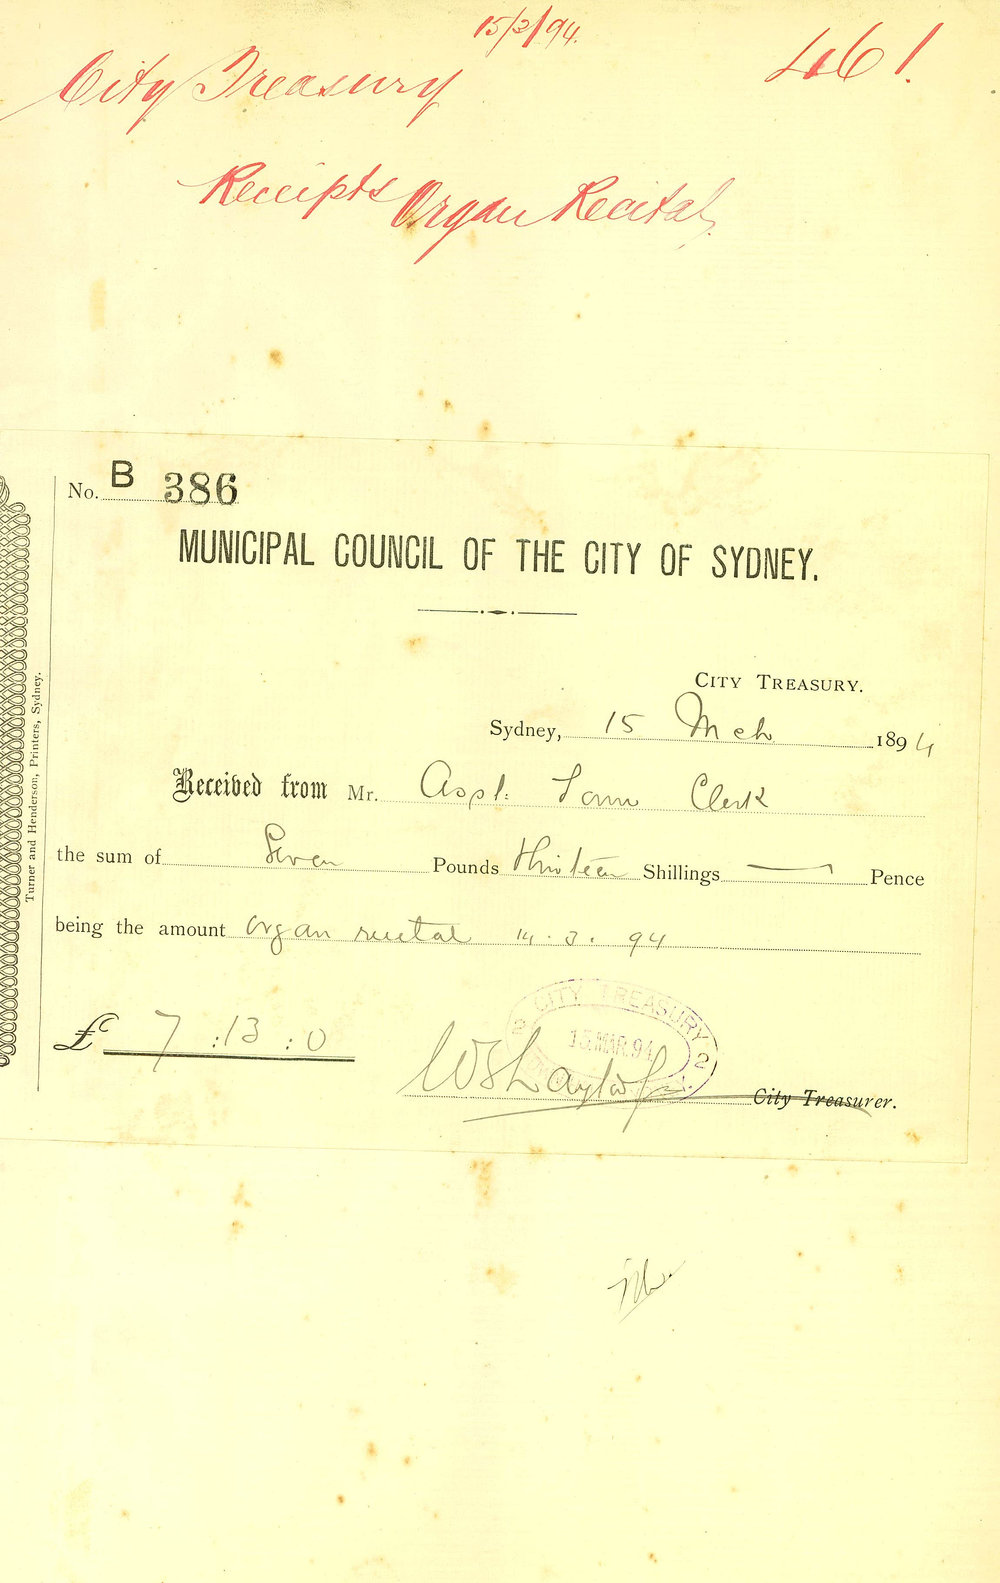 15/3/94.
City Treasury
461.
Receipts Organ Recital
No. B 386
MUNICIPAL COUNCIL OF THE CITY OF SYDNEY.
CITY TREASURY.
Sydney, 15 Mch 1894
Received from Mr. Town Clerk
the sum of Seven Pounds thirteen Shillings — Pence
being the amount organ recital 14.3.94
£ 7:13:0
CITY TREASURY
2 2
15 MAR. 94
City Treasurer.
Turner and Henderson, Printers, Sydney.